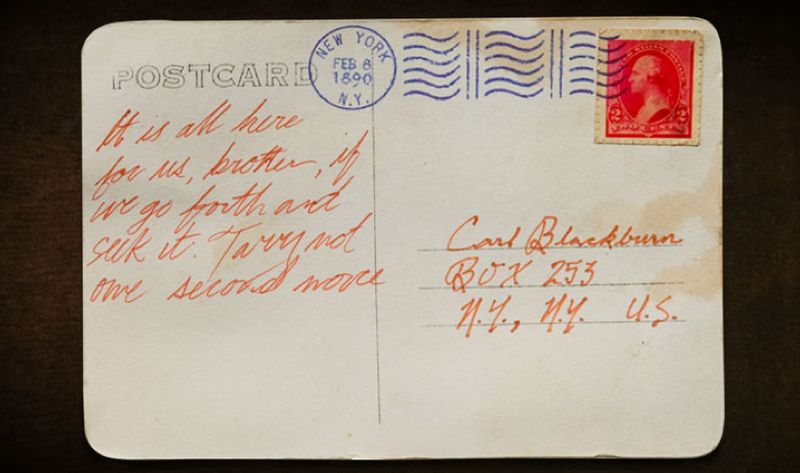 POSTCARD
NEW YORK
FEB 8
1890
N.Y.
2 2
TWO CENTS
It is all here
for us, brother, if
we go forth and
seek it. Tarry not
one second more
Carl Blackburn
BOX 253
N.Y., N.Y. U.S.